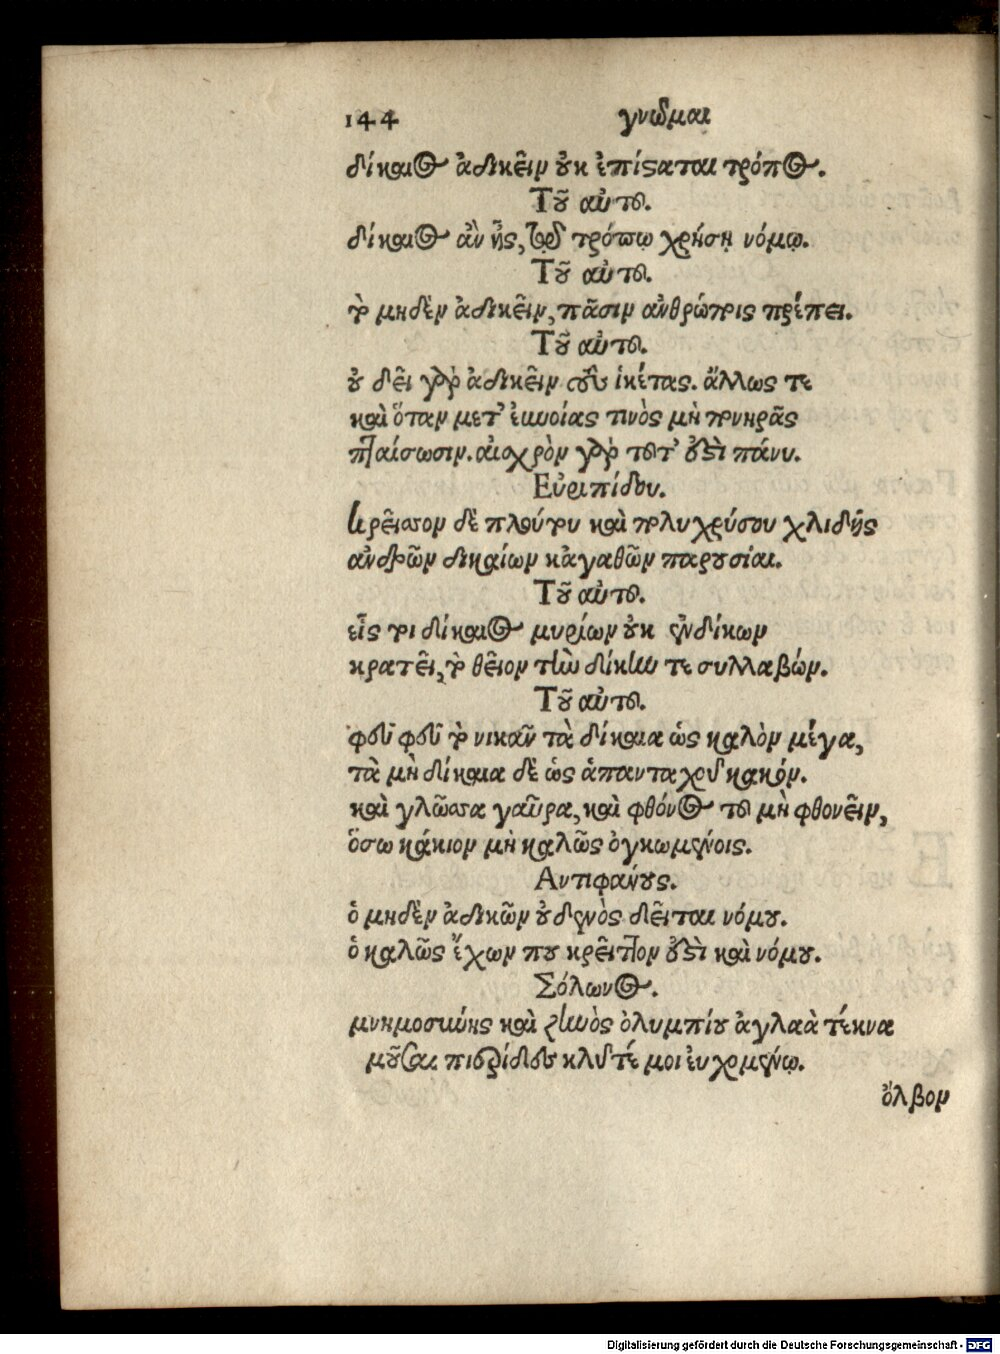 144 γνῶμαι
δίκαιος ἀδικεῖν οὐκ ἐπίσταται τρόπος.
Τοῦ αὐτοῦ.
δίκαιος ἂν ᾖς, τῷ τρόπῳ χρήσῃ νόμῳ.
Τοῦ αὐτοῦ.
τὸ μηδὲν ἀδικεῖν, πᾶσιν ἀνθρώποις πρέπει.
Τοῦ αὐτοῦ.
οὐ δεῖ γὰρ ἀδικεῖν τοὺς ἱκέτας. ἄλλως τε
καὶ ὅταν μετ' ἐυνοίας τινὸς μὴ πονηρᾶς
πταίσωσιν. αἰσχρὸν γὰρ τοῦτ' ὅστὶ πάνυ.
Εὐριπίδου.
κρεῖσσον δὲ πλούτου καὶ πολυχρύσου χλιδῆς
ἀνδρῶν δικαίων κἀγαθῶν παρουσίαι.
Τοῦ αὐτοῦ.
εἷς τοι δίκαιος μυρίων οὐκ ἐνδίκων
κρατεῖ, τὸ θεῖον τὴν δίκην τε συλλαβών.
Τοῦ αὐτοῦ.
φεῦ φεῦ τὸ νικᾶν τὰ δίκαια ὡς καλὸν μέγα,
τὰ μὴ δίκαια δὲ ὡς ἁπανταχοῦ κακόν.
καὶ γλῶσσα γαῦρα, καὶ φθόνος τοῦ μὴ φθονεῖν,
ὅσω κάκιον μὴ καλῶς ὀγκωμένοις.
Αντιφάνους.
ὁ μηδὲν ἀδικῶν οὐδενὸς δεῖται νόμου.
ὁ καλῶς ἔχων που κρεῖττον ὅστὶ καὶ νόμου.
Σόλωνος.
μνημοσύνης καὶ ζηνὸς ὀλυμπίου ἀγλαὰ τέκνα
μοῦσαι πιερίδες κλῦτέ μοι ἐυχομένῳ.
ὄλβον
Digitalisierung gefördert durch die Deutsche Forschungsgemeinschaft - DFG